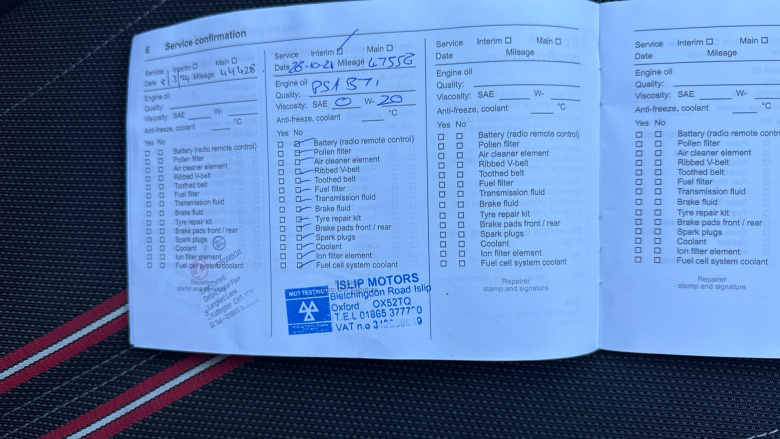 6 Service confirmation
Service Interim Main
Date 8/3/24 Mileage 44428
Engine oil
Quality:
Viscosity: SAE W-
Anti-freeze, coolant °C
Yes No
Battery (radio remote control)
Pollen filter
Air cleaner element
Ribbed V-belt
Toothed belt
Fuel filter
Transmission fluid
Brake fluid
Tyre repair kit
Brake pads front / rear
Spark plugs
Coolant
Ion filter element
Fuel cell system coolant
Repairer
Service Interim Main
Date 28-10-24 Mileage 47556
Engine oil
Quality:
Viscosity: SAE 0 W- 20
Anti-freeze, coolant °C
Yes No
Battery (radio remote control)
Pollen filter
Air cleaner element
Ribbed V-belt
Toothed belt
Fuel filter
Transmission fluid
Brake fluid
Tyre repair kit
Brake pads front / rear
Spark plugs
Coolant
Ion filter element
Fuel cell system coolant
MOT TESTING
ISLIP MOTORS
Bletchingdon Road Islip
Oxford OX52TQ
T.E.L 01865 377770
VAT n.o
Service Interim Main
Date Mileage
Engine oil
Quality:
Viscosity: SAE W-
Anti-freeze, coolant °C
Yes No
Battery (radio remote control)
Pollen filter
Air cleaner element
Ribbed V-belt
Toothed belt
Fuel filter
Transmission fluid
Brake fluid
Tyre repair kit
Brake pads front / rear
Spark plugs
Coolant
Ion filter element
Fuel cell system coolant
Repairer
stamp and signature
Service Interim Main
Date Mileage
Engine oil
Quality:
Viscosity: SAE W-
Anti-freeze, coolant °C
Yes No
Battery (radio remote contr
Pollen filter
Air cleaner element
Ribbed V-belt
Toothed belt
Fuel filter
Transmission fluid
Brake fluid
Tyre repair kit
Brake pads front / rear
Spark plugs
Coolant
Ion filter element
Fuel cell system coolant
Repairer
stamp and signature